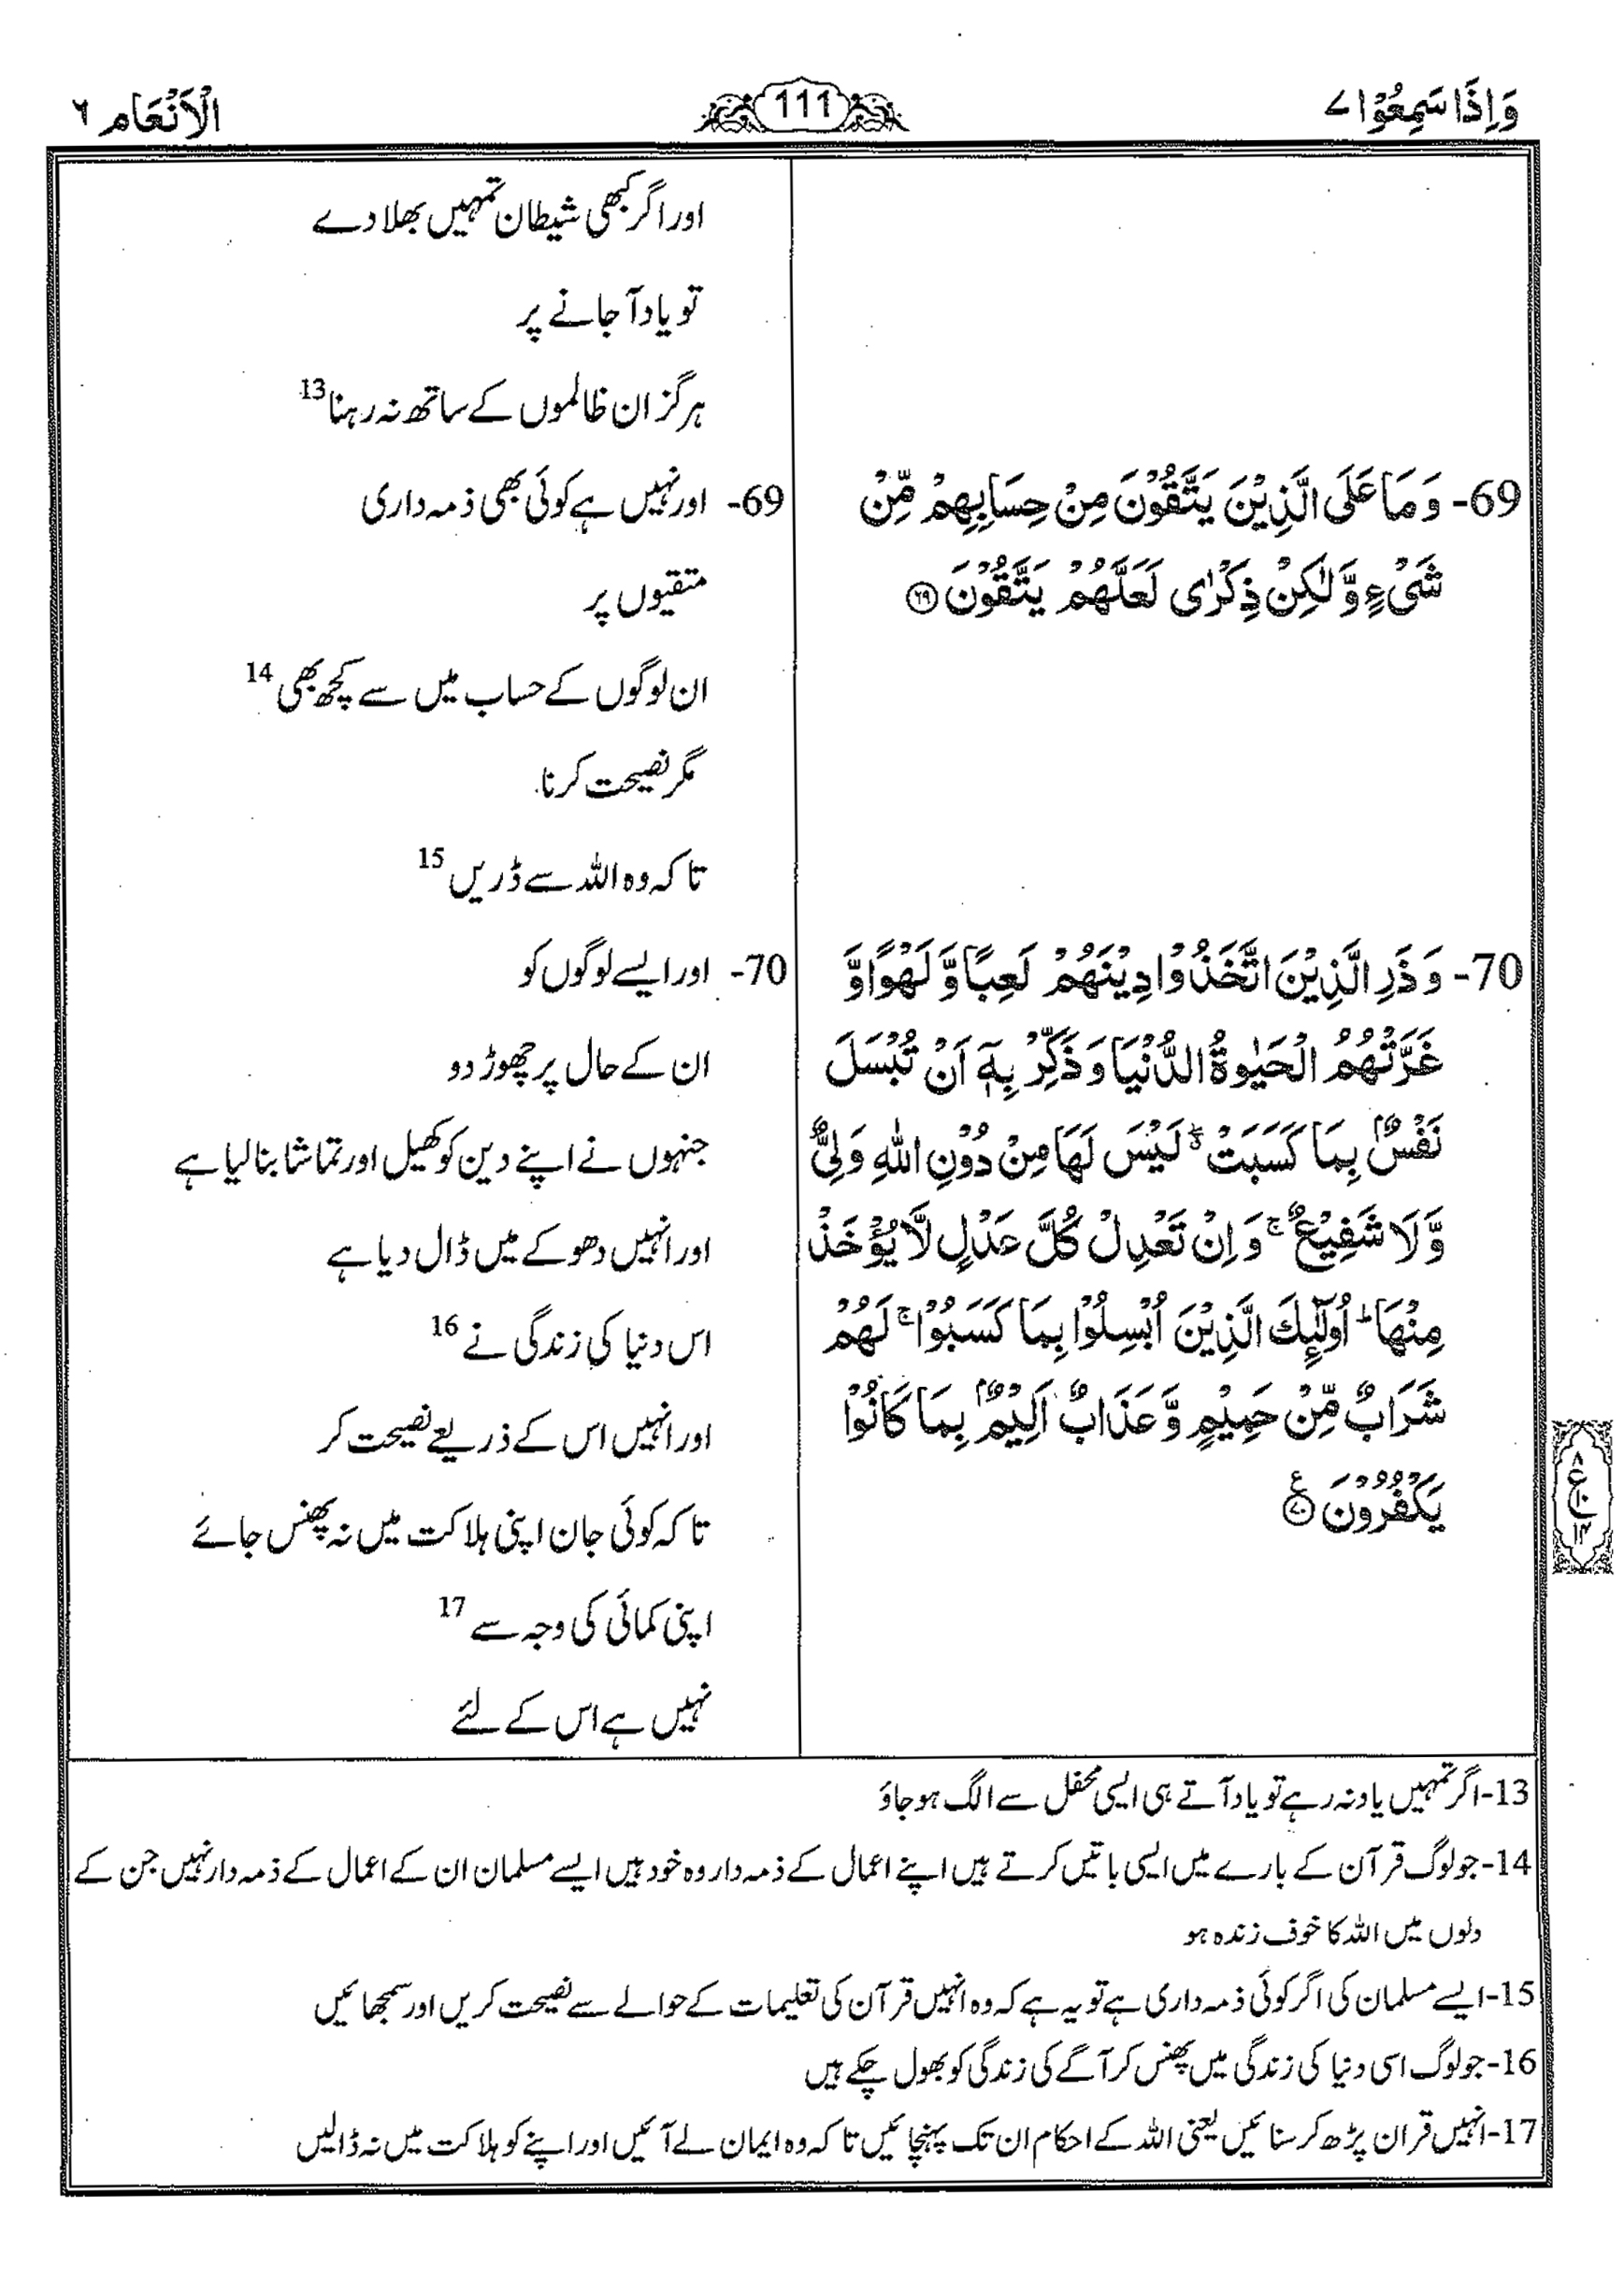 وَاِذَا سَمِعُوْا ٧
111
الْاَنْعَام ٦
69- وَمَا عَلَى الَّذِيْنَ يَتَّقُوْنَ مِنْ حِسَابِهِمْ مِّنْ
شَىْءٍ وَّلٰكِنْ ذِكْرٰى لَعَلَّهُمْ يَتَّقُوْنَ ۝٦٩
70- وَذَرِ الَّذِيْنَ اتَّخَذُوْا دِيْنَهُمْ لَعِبًا وَّلَهْوًا وَّ
غَرَّتْهُمُ الْحَيٰوةُ الدُّنْيَا وَذَكِّرْ بِهٖٓ اَنْ تُبْسَلَ
نَفْسٌۢ بِمَا كَسَبَتْ ۖ لَيْسَ لَهَا مِنْ دُوْنِ اللّٰهِ وَلِىٌّ
وَّلَا شَفِيْعٌ ۚ وَاِنْ تَعْدِلْ كُلَّ عَدْلٍ لَّا يُؤْخَذْ
مِنْهَا ؕ اُولٰٓئِكَ الَّذِيْنَ اُبْسِلُوْا بِمَا كَسَبُوْا ۚ لَهُمْ
شَرَابٌ مِّنْ حَمِيْمٍ وَّعَذَابٌ اَلِيْمٌۢ بِمَا كَانُوْا
يَكْفُرُوْنَ ۝٧٠ ع
٨
ع
١٠
١٤
اور اگر کبھی شیطان تمہیں بھلا دے
تو یاد آ جانے پر
ہرگز ان ظالموں کے ساتھ نہ رہنا 13
69- اور نہیں ہے کوئی بھی ذمہ داری
متقیوں پر
ان لوگوں کے حساب میں سے کچھ بھی 14
مگر نصیحت کرنا
تاکہ وہ اللہ سے ڈریں 15
70- اور ایسے لوگوں کو
ان کے حال پر چھوڑ دو
جنہوں نے اپنے دین کو کھیل اور تماشا بنا لیا ہے
اور انہیں دھوکے میں ڈال دیا ہے
اس دنیا کی زندگی نے 16
اور انہیں اس کے ذریعے نصیحت کر
تاکہ کوئی جان اپنی ہلاکت میں نہ پھنس جائے
اپنی کمائی کی وجہ سے 17
نہیں ہے اس کے لئے
13-اگر تمہیں یاد نہ رہے تو یاد آتے ہی ایسی محفل سے الگ ہو جاؤ
14-جو لوگ قرآن کے بارے میں ایسی باتیں کرتے ہیں اپنے اعمال کے ذمہ دار وہ خود ہیں ایسے مسلمان ان کے اعمال کے ذمہ دار نہیں جن کے
دلوں میں اللہ کا خوف زندہ ہو
15-ایسے مسلمان کی اگر کوئی ذمہ داری ہے تو یہ ہے کہ وہ انہیں قرآن کی تعلیمات کے حوالے سے نصیحت کریں اور سمجھائیں
16-جو لوگ اسی دنیا کی زندگی میں پھنس کر آگے کی زندگی کو بھول چکے ہیں
17-انہیں قران پڑھ کر سنائیں یعنی اللہ کے احکام ان تک پہنچائیں تاکہ وہ ایمان لے آئیں اور اپنے کو ہلاکت میں نہ ڈالیں